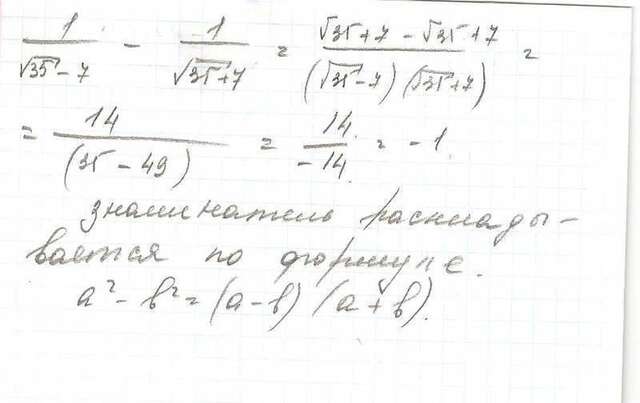 1/(√35 - 7) - 1/(√35+7) = (√35+7 - √35+7)/((√35-7)(√35+7)) =
= 14/(35 - 49) = 14/-14 = -1
знаменатель расклады-
вается по формуле.
a² - b² = (a-b) (a+b).